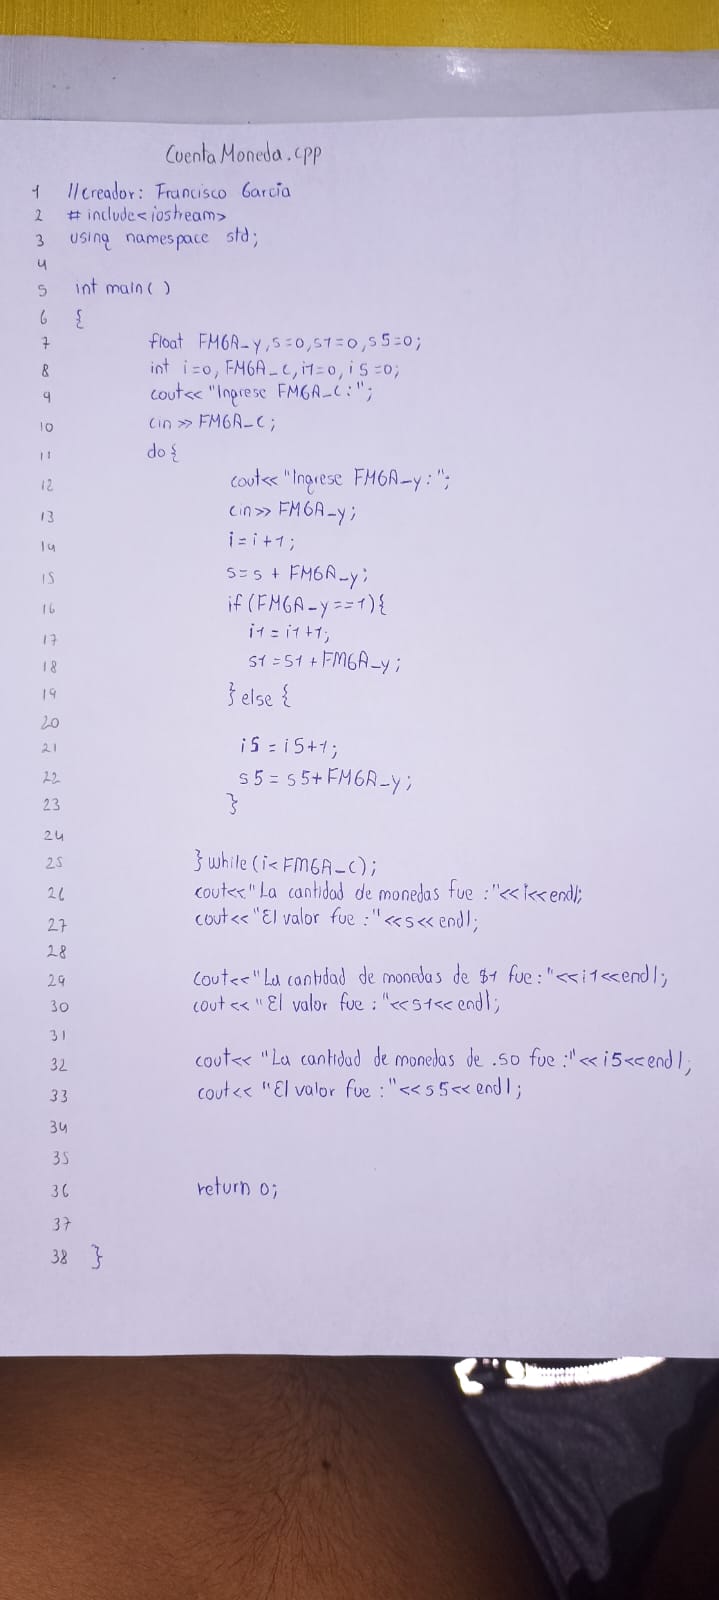 CuentaMoneda.cpp
1 //Creador: Francisco Garcia
2 # include<iostream>
3 using namespace std;
4
5 int main( )
6 {
7 float FMGA_y,s=0,s1=0,s5=0;
8 int i=0, FMGA_C,i1=0, i5=0;
9 cout<< "Ingrese FMGA_C:";
10 cin >> FMGA_C;
11 do {
12 cout<< "Ingrese FMGA_y:";
13 cin>> FMGA_y;
14 i=i+1;
15 s=s + FMGA_y;
16 if (FMGA_y==1){
17 i1=i1+1;
18 s1=s1+FMGA_y;
19 } else {
20
21 i5=i5+1;
22 s5=s5+FMGA_y;
23 }
24
25 } while (i<FMGA_C);
26 cout<<"La cantidad de monedas fue :"<<i<<endl;
27 cout<<"El valor fue :"<<s<<endl;
28
29 Cout<<"La cantidad de monedas de $1 fue:"<<i1<<endl;
30 cout<<"El valor fue :"<<s1<<endl;
31
32 cout<< "La cantidad de monedas de .50 fue :"<<i5<<endl;
33 cout<< "El valor fue :"<<s5<<endl;
34
35
36 return 0;
37
38 }